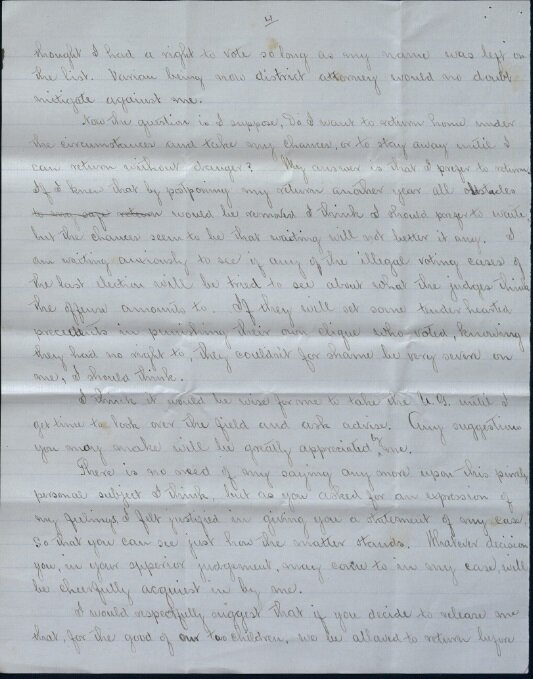 4
thought I had a right to vote so long as my name was left on
the list. Varian being now district attorney would no doubt
mitigate against me.
Now the question is I suppose, Do I want to return home under
the circumstances and take my chances, or to stay away until I
can return without danger? My answer is that I prefer to return.
If I knew that by postponing my return another year all obstacles
to my safe return would be removed I think I should prefer to wait,
but the chances seem to be that waiting will not better it any. I
am waiting anxiously to see if any of the illegal voting cases of
the last election will be tried to see about what the judges think
the offense amounts to. If they will set some tender hearted
precedents in punishing their own clique who voted, knowing
they had no right to, they couldn't for shame be very severe on
me, I should think.
I think it would be wise for me to take the U. G. until I
get time to look over the field and ask advise. Any suggestions
you may make will be greatly appreciated by me.
There is no need of my saying any more upon this purely
personal subject I think, but as you asked for an expression of
my feelings I felt justified in giving you a statement of my case,
so that you can see just how the matter stands. Whatever decision
you, in your superior judgement, may come to in my case, will
be cheerfully acquiest in by me.
I would respectfully suggest that if you decide to release me
that, for the good of our two children, we be allowed to return before